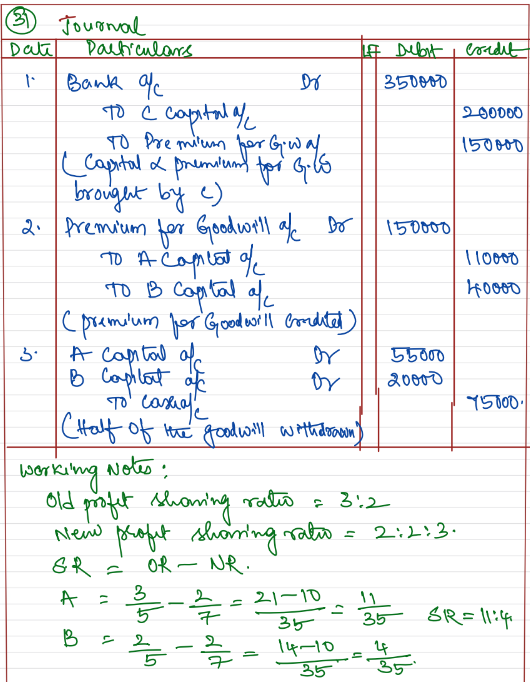 31 Journal
Date Particulars LF Debit Credit
1. Bank a/c Dr 350000
To C Capital a/c 200000
To Premium for G.W a/c 150000
( Capital & premium for G.W
brought by C)
2. Premium for Goodwill a/c Dr 150000
To A Capital a/c 110000
To B Capital a/c 40000
( premium for Goodwill Credited )
3. A Capital a/c Dr 55000
B Capital a/c Dr 20000
To Cash a/c 75000.
(Half Of the goodwill withdrawn)
Working Notes :
Old profit sharing ratio = 3:2
New profit sharing ratio = 2:2:3.
SR = OR - NR.
A = 3/5 - 2/7 = 21-10/35 = 11/35 SR = 11:4.
B = 2/5 - 2/7 = 14-10/35 = 4/35.